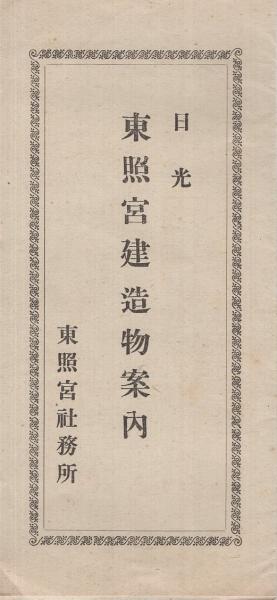 日光
東照宮建造物案内
東照宮社務所